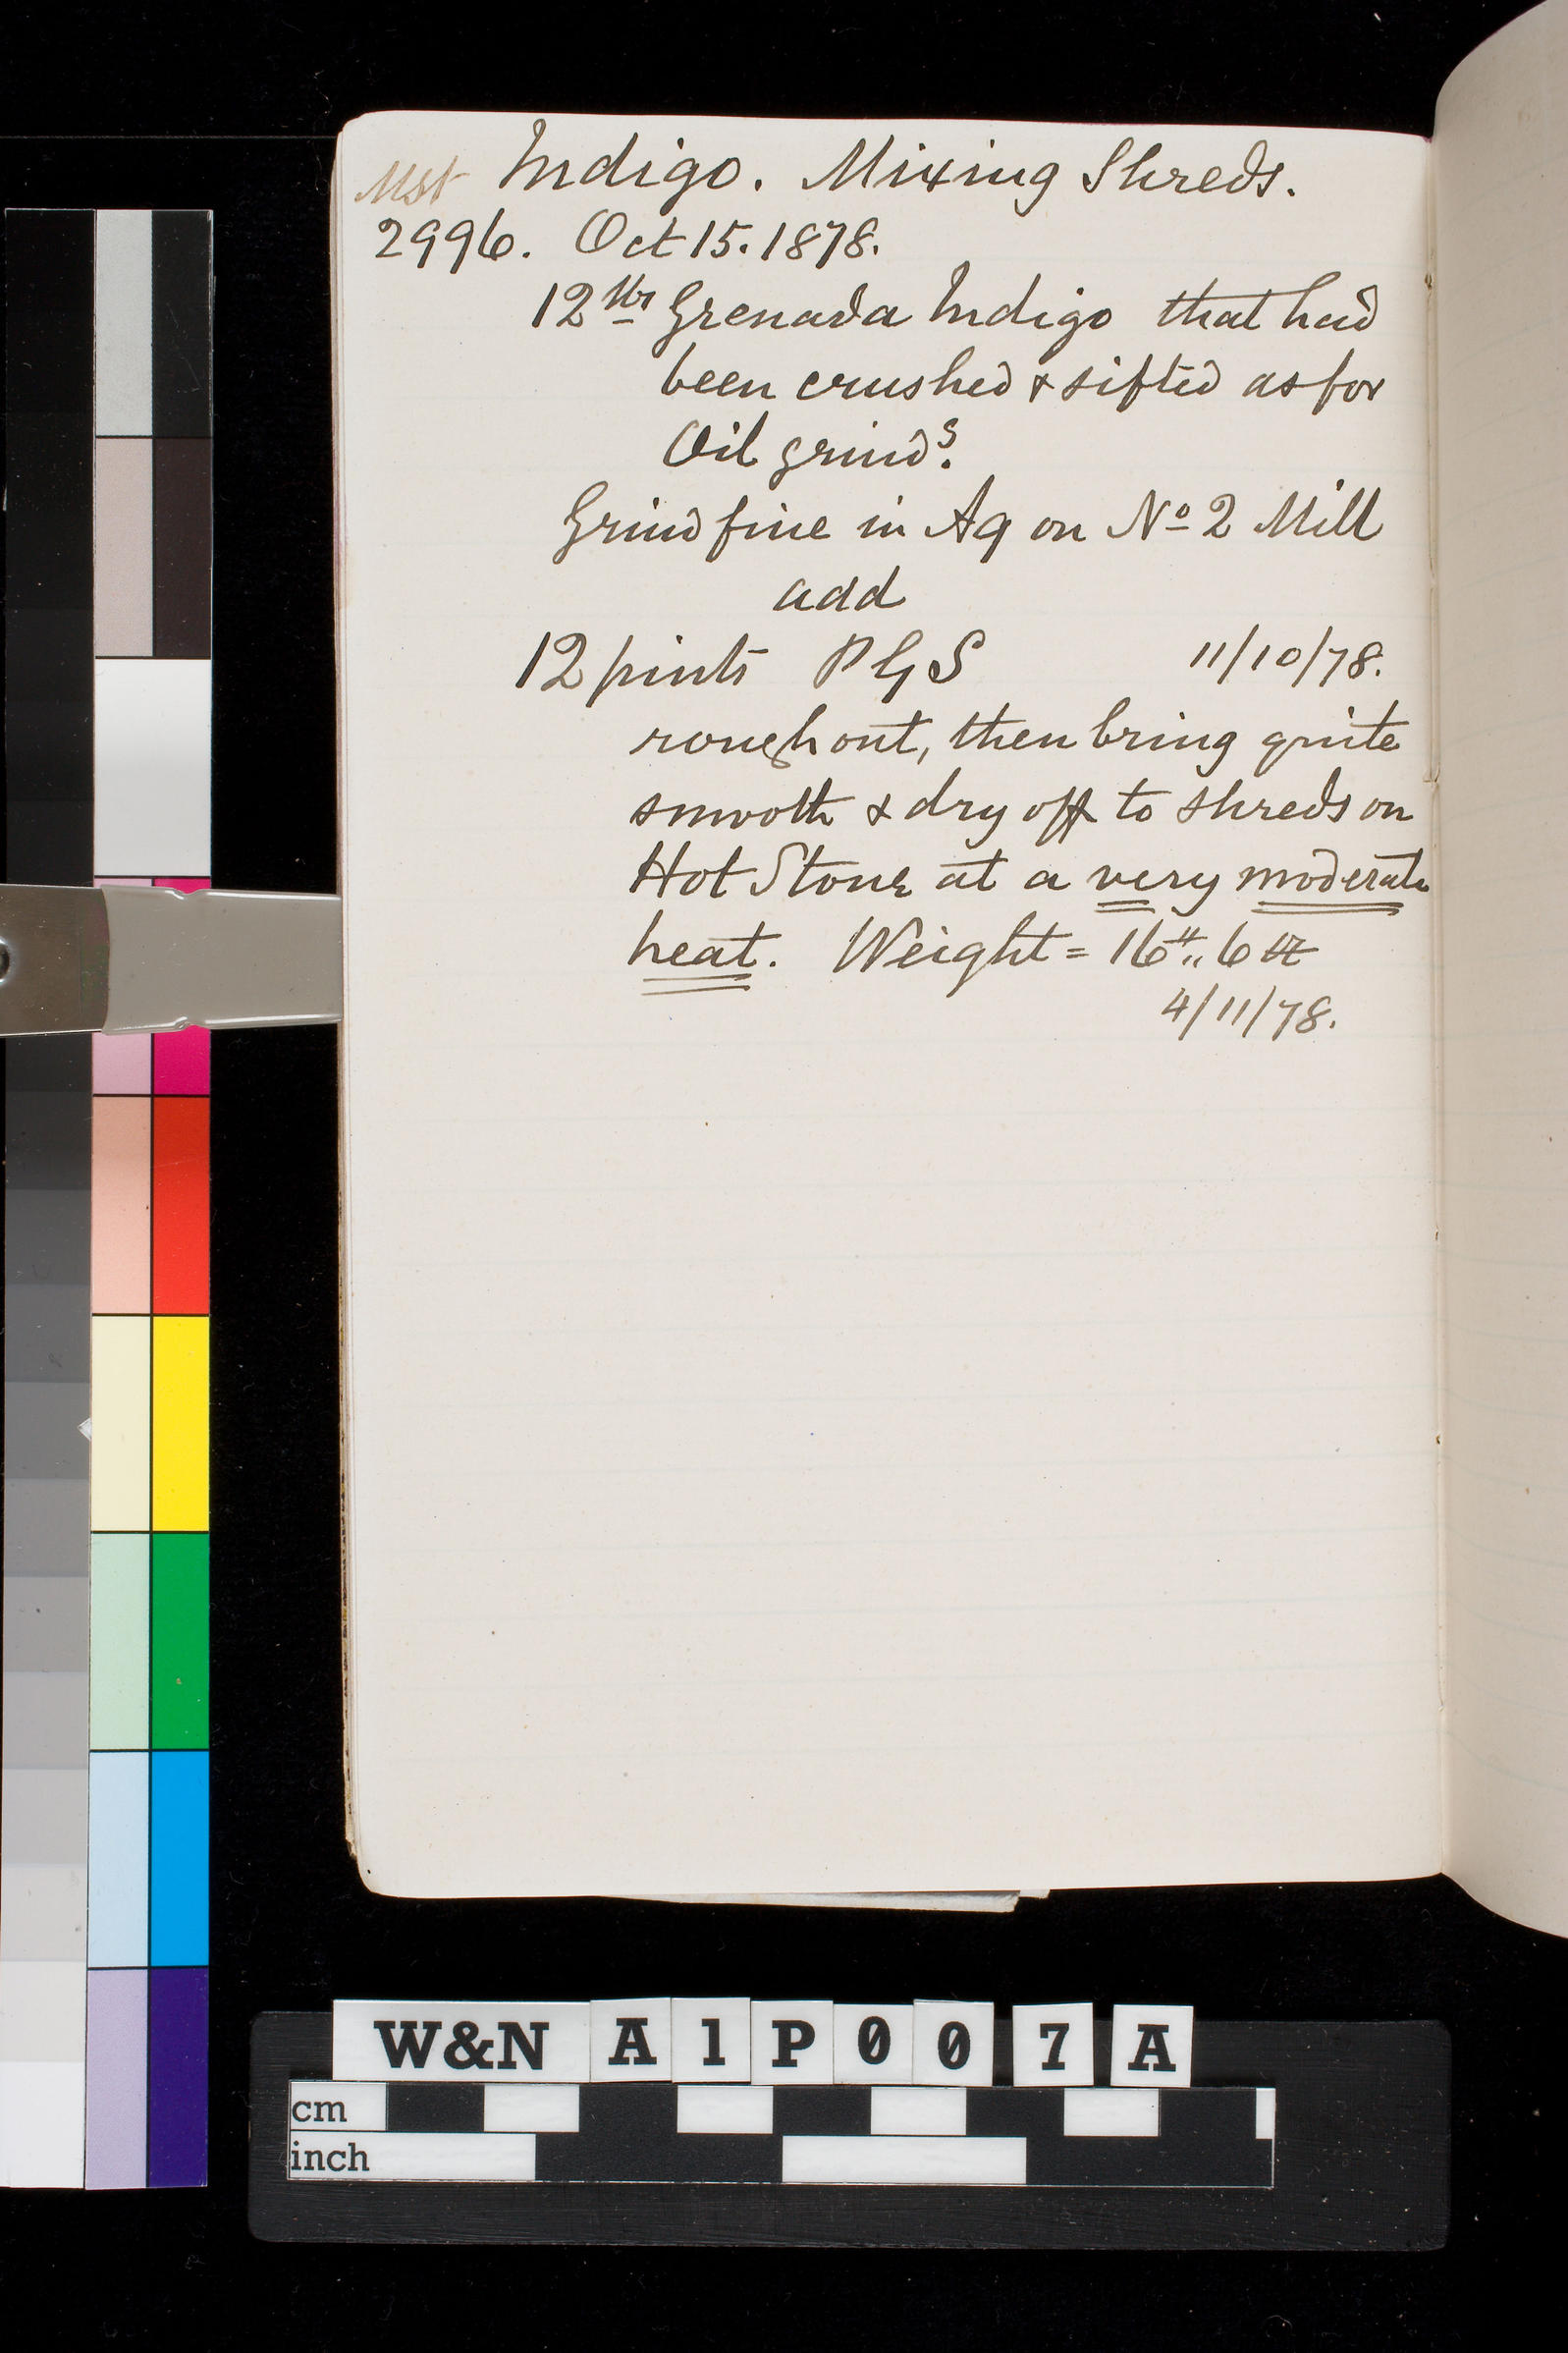 Mst Indigo. Mixing Shreds.
2996. Oct 15. 1878.
12 lbs Grenada Indigo that had
been crushed & sifted as for
Oil grindg.
Grind fine in Aq on No 2 Mill
add
12 pints P G S 11/10/78.
rough out, then bring quite
smooth & dry off to shreds on
Hot Stone at a very moderate
heat. Weight = 16 " 6
4/11/78.
W&N A1P007A
cm
inch